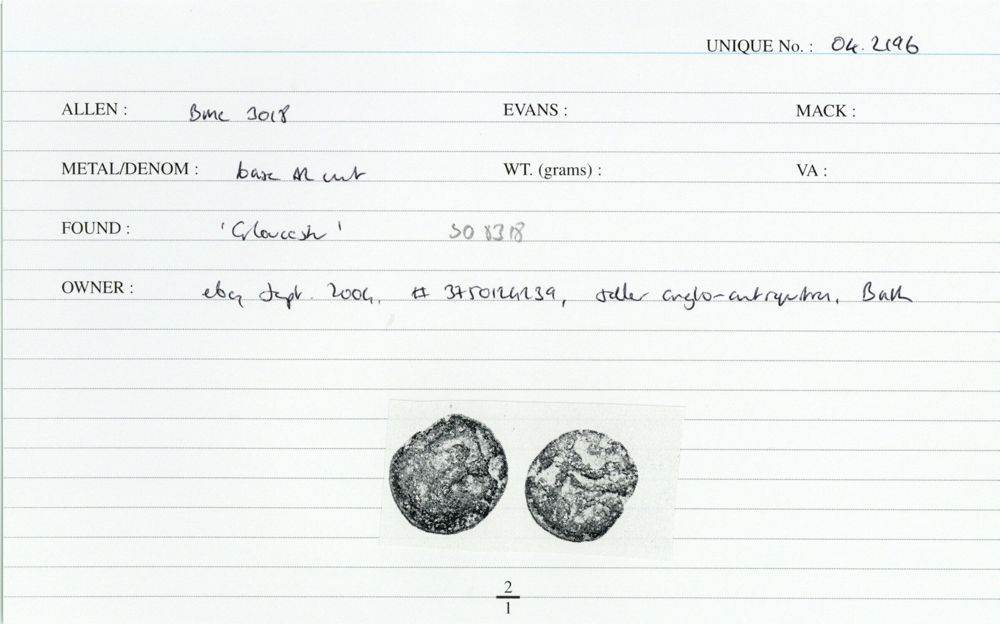 UNIQUE No. : 04.2196
ALLEN : BMC 3018 EVANS : MACK :
METAL/DENOM : base AR unit WT. (grams) : VA :
FOUND : 'Gloucester' SO 8318
OWNER : ebay Sept. 2004, # 3750124239, seller anglo-antiquities, Bath
2
1